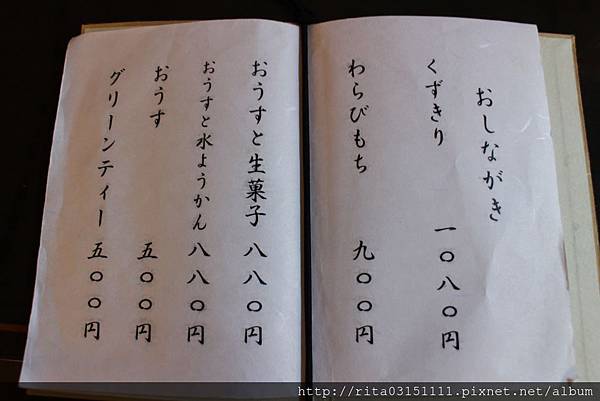 おしながき
くずきり 一〇八〇円
わらびもち 九〇〇円
おうすと生菓子 八八〇円
おうすと水ようかん 八八〇円
おうす 五〇〇円
グリーンティー 五〇〇円
http://rita03151111.pixnet.net/album